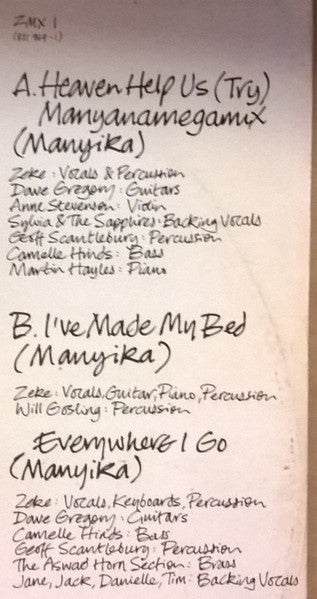 ZMX 1
(871 969-1)
A. Heaven Help Us (Try)
Manyanamegamix
(Manyika)
Zeke: Vocals & Percussion
Dave Gregory: Guitars
Anne Stevenson: Violin
Sylvia & The Sapphires: Backing Vocals
Geoff Scantlebury: Percussion
Camelle Hinds: Bass
Martin Hayles: Piano
B. I've Made My Bed
(Manyika)
Zeke: Vocals, Guitar, Piano, Percussion
Will Gosling: Percussion
Everywhere I Go
(Manyika)
Zeke: Vocals, Keyboards, Percussion
Dave Gregory: Guitars
Camelle Hinds: Bass
Geoff Scantlebury: Percussion
The Aswad Horn Section: Brass
Jane, Jack, Danielle, Tim: Backing Vocals